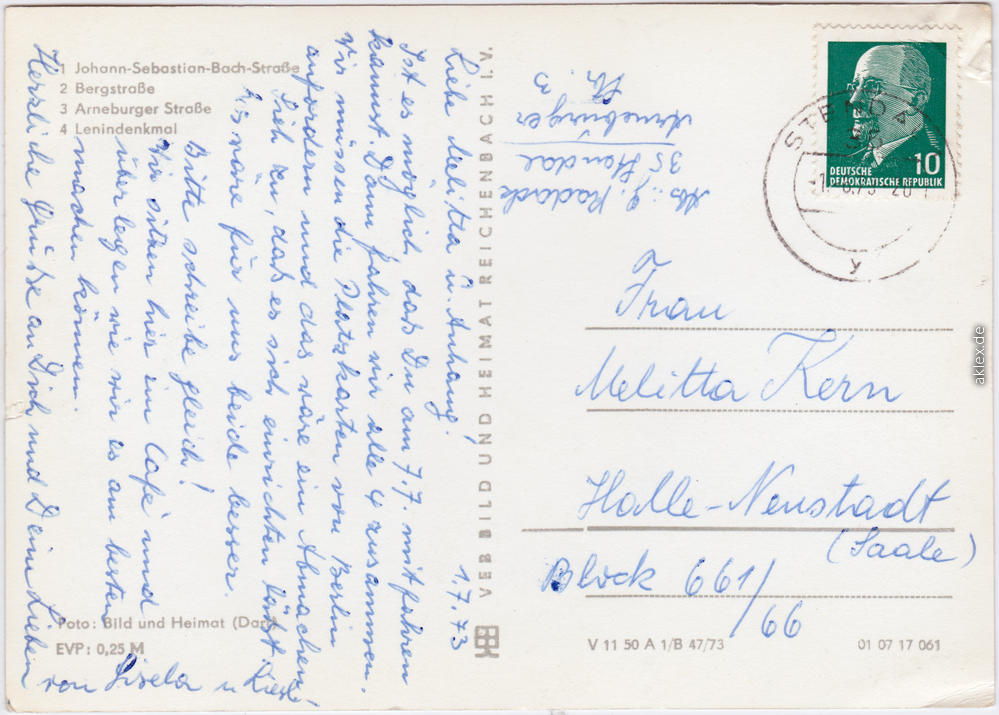 1 Johann-Sebastian-Bach-Straße
2 Bergstraße
3 Arneburger Straße
4 Lenindenkmal
1.7.73
Liebe Melitta u. Anhang!
Ist es möglich, daß Du am 7.7. mitfahren
kannst. Dann fahren wir alle 4 zusammen.
Wir müssen die Platzkarten von Berlin
anfordern und das wäre ein Abmachen.
Sieh zu, daß es sich einrichten läßt.
Es wäre für uns beide besser.
Bitte schreibe gleich!
Wir sitzen hier im Café und
überlegen wie wir es am besten
machen können.
Herzliche Grüße an Dich und Deine Lieben
von Gisela u.
Foto: Bild und Heimat
EVP: 0,25 M
VEB BILD UND HEIMAT REICHENBACH I. V.
Abs.: G.
35 Stendal
Arneburger
Str.
STENDAL
10
DEUTSCHE
DEMOKRATISCHE REPUBLIK
y
Frau
Melitta Kern
Halle-Neustadt
(Saale)
Block 661/
66
V 11 50 A 1/B 47/73
01 07 17 061
aklex.de